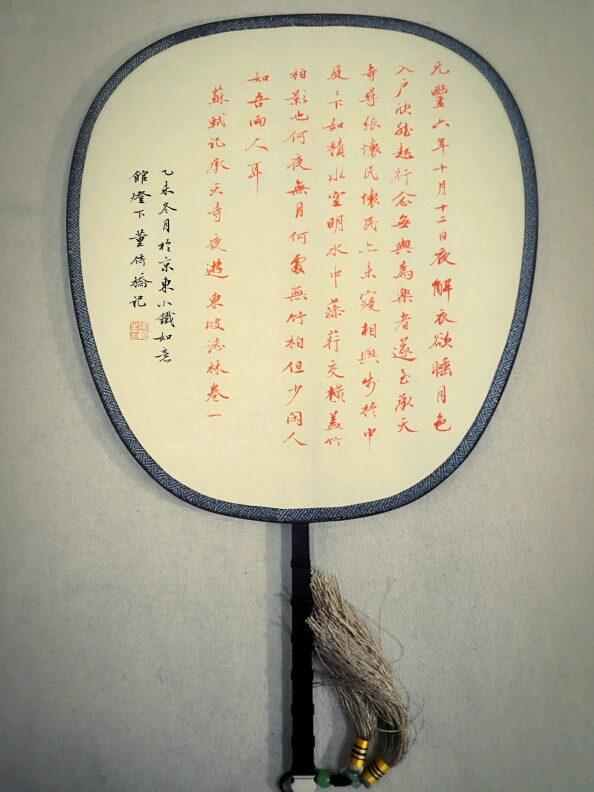 元豐六年十月十二日夜解衣欲睡月色
入戶欣然起行念無與為樂者遂至承天
寺尋張懷民懷民亦未寢相與步於中
庭下如積水空明水中藻荇交橫蓋竹
柏影也何夜無月何處無竹柏但少閑人
如吾兩人耳
蘇軾記承天寺夜遊東坡志林卷一
乙未冬月於京東小鐵如意
館燈下董倚橋記